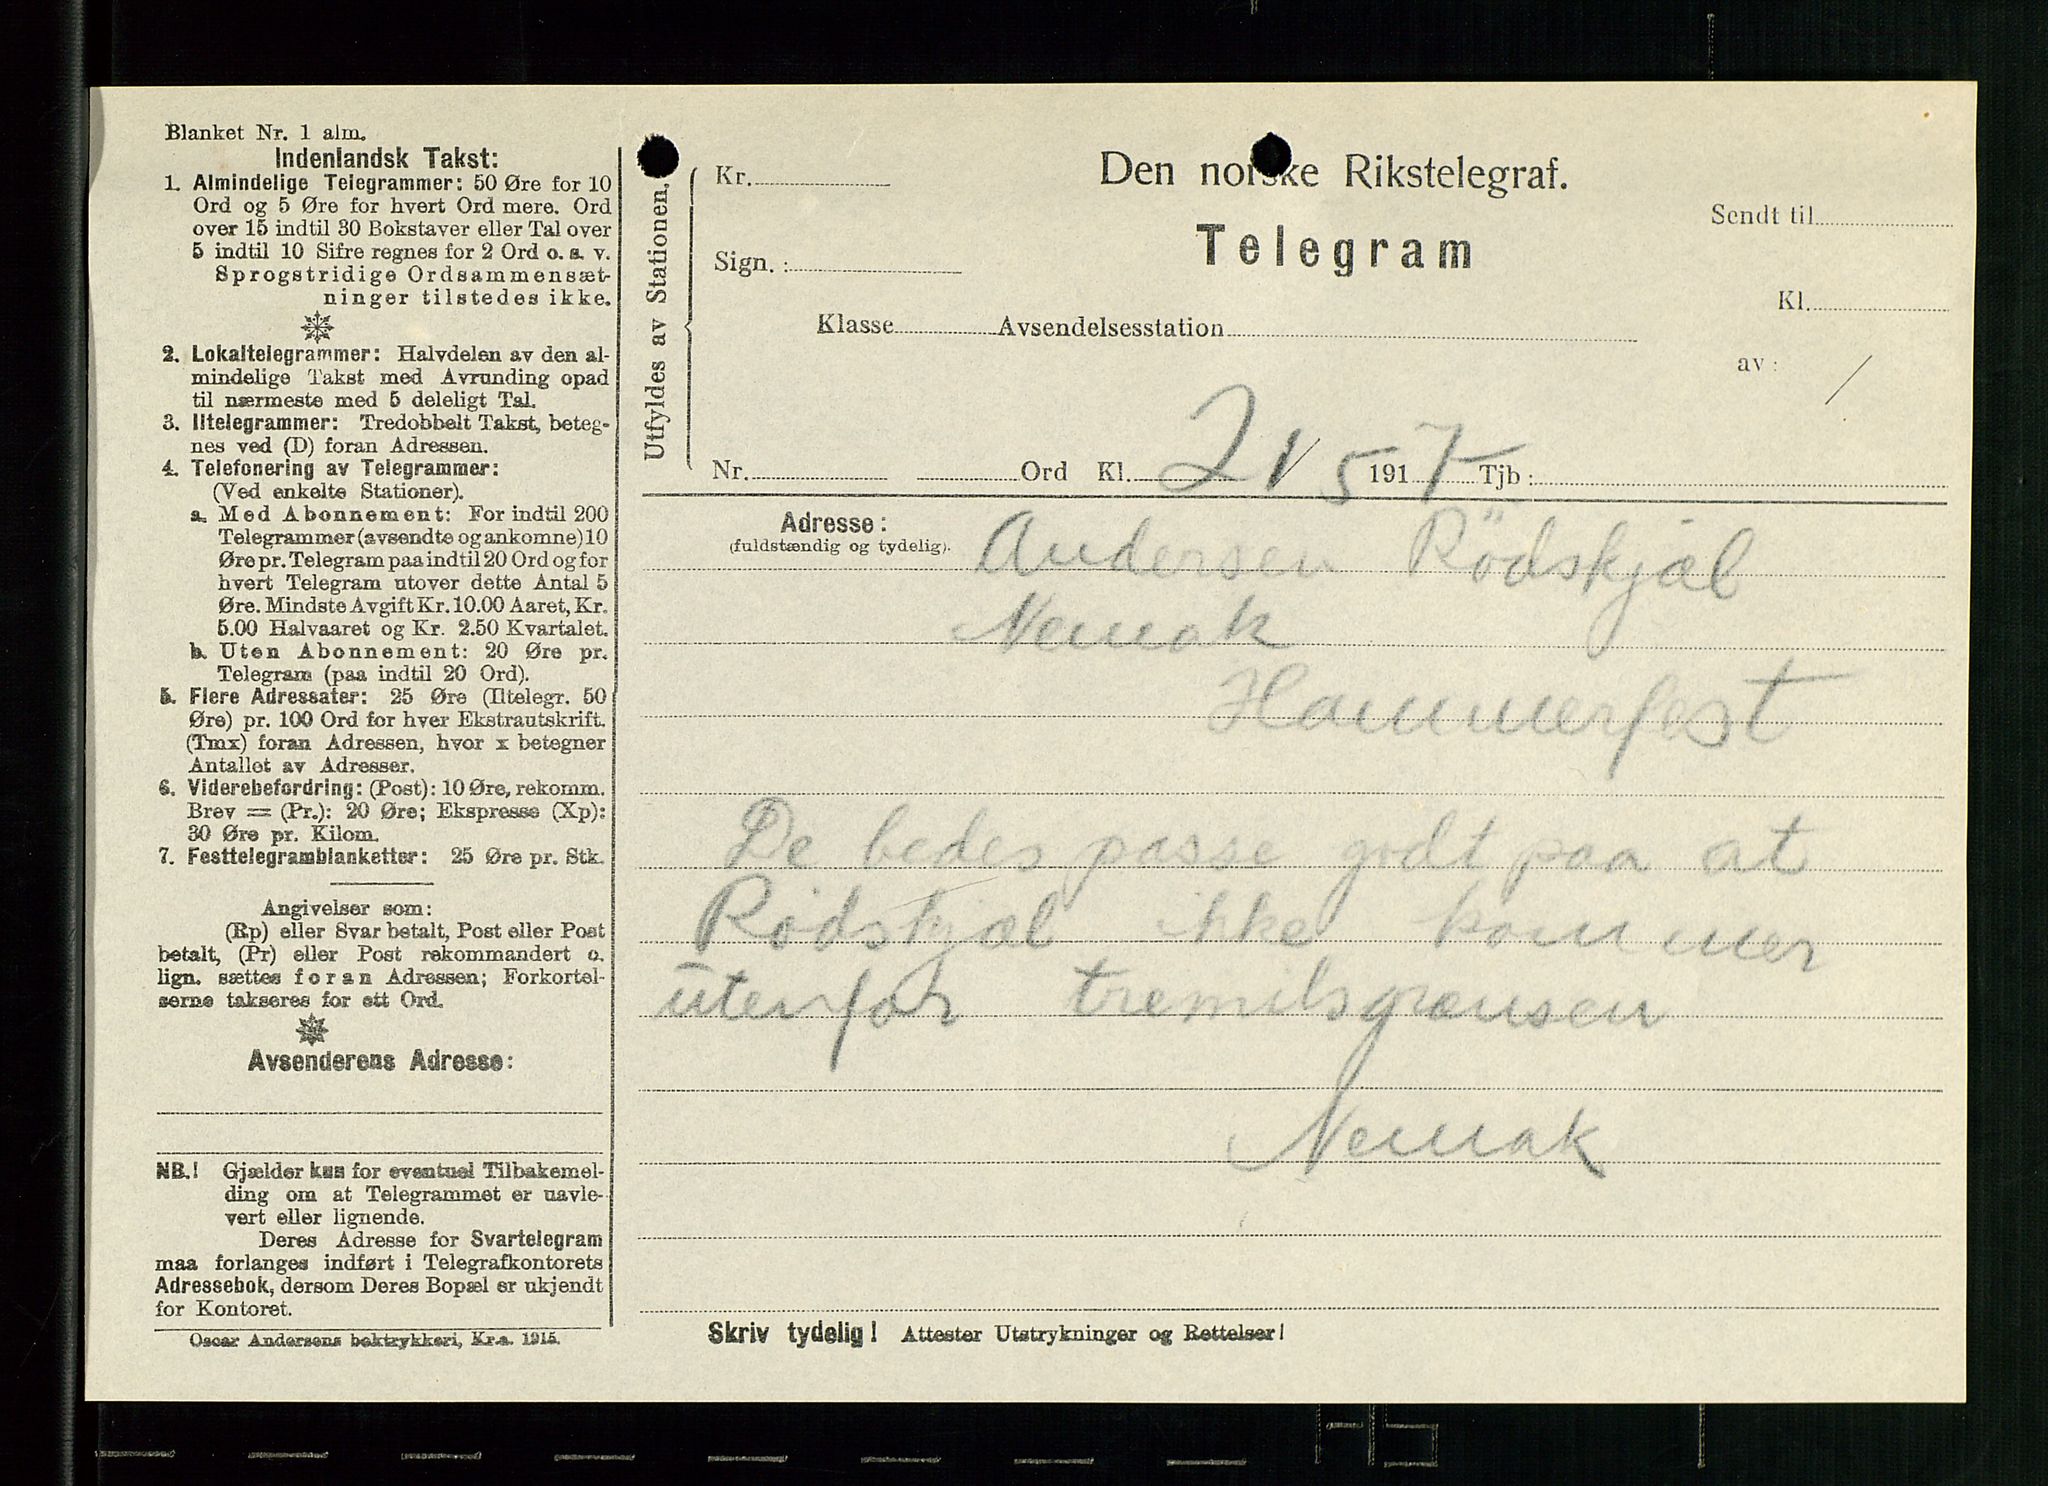 Blanket Nr. 1 alm.
Indenlandsk Takst:
1. Almindelige Telegrammer: 50 Øre for 10
Ord og 5 Øre for hvert Ord mere. Ord
over 15 indtil 30 Bokstaver eller Tal over
5 indtil 10 Sifre regnes for 2 Ord o. s. v.
Sprogstridige Ordsammensæt-
ninger tilstedes ikke.
2. Lokaltelegrammer: Halvdelen av den al-
mindelige Takst med Avrunding opad
til nærmeste med 5 deleligt Tal.
3. Iltelegrammer: Tredobbelt Takst, beteg-
nes ved (D) foran Adressen.
4. Telefonering av Telegrammer:
(Ved enkelte Stationer).
a. Med Abonnement: For indtil 200
Telegrammer (avsendte og ankomne) 10
Øre pr. Telegram paa indtil 20 Ord og for
hvert Telegram utover dette Antal 5
Øre. Mindste Avgift Kr. 10.00 Aaret, Kr.
5.00 Halvaaret og Kr. 2.50 Kvartalet.
b. Uten Abonnement: 20 Øre pr.
Telegram (paa indtil 20 Ord).
5. Flere Adressater: 25 Øre (Iltelegr. 50
Øre) pr. 100 Ord for hver Ekstrautskrift.
(Tmx) foran Adressen, hvor x betegner
Antallet av Adresser.
6. Viderebefordring: (Post): 10 Øre, rekomm.
Brev = (Pr.): 20 Øre; Ekspresse (Xp):
30 Øre pr. Kilom.
7. Festtelegramblanketter: 25 Øre pr. Stk.
Angivelser som:
(Rp) eller Svar betalt, Post eller Post
betalt, (Pr) eller Post rekommandert o.
lign. sættes foran Adressen; Forkortel-
serne takseres for ett Ord.
Avsenderens Adresse:
NB.! Gjælder kun for eventuel Tilbakemel-
ding om at Telegrammet er uavle-
vert eller lignende.
Deres Adresse for Svartelegram
maa forlanges indført i Telegrafkontorets
Adressebok, dersom Deres Bopæl er ukjendt
for Kontoret.
Oscar Andersens boktrykkeri, Kr.a. 1915.
Utfyldes av Stationen.
Kr.
Den norske Rikstelegraf.
Sendt til
Sign.:
Telegram
Kl.
Klasse Avsendelsesstation
av: /
Nr. Ord Kl. 21/5 1917 Tjb:
Adresse: Andersen Rödskjæl
(fuldstændig og tydelig).
Nemak
Hammerfest
De bedes passe godt paa at
Rödskjæl ikke kommer
utenfor tremilsgrænsen
Nemak
Skriv tydelig! Attester Utstrykninger og Rettelser!